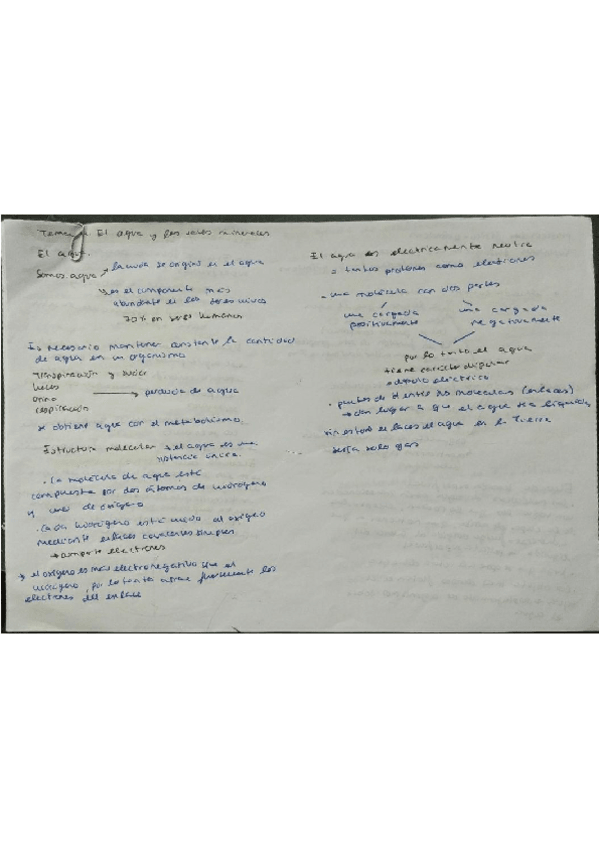 Tema 1: El agua y las sales minerales
El agua.
Somos agua → la vida se originó en el agua
→ es el componente más
abundante en los seres vivos
70% en seres humanos
Es necesario mantener constante la cantidad
de agua en un organismo
Transpiración y sudor
heces
orina → pérdida de agua
respiración
se obtiene agua con el metabolismo.
Estructura molecular → el agua es una
sustancia única.
· La molécula de agua está
compuesta por dos átomos de hidrógeno
y uno de oxígeno
· Cada hidrógeno está unido al oxígeno
mediante enlaces covalentes simples
→ comparte electrones
→ el oxígeno es más electronegativo que el
hidrógeno, por lo tanto atrae fuertemente los
electrones del enlace
El agua es eléctricamente neutra
= tantos protones como electrones
- una molécula con dos partes
una cargada una cargada
positivamente negativamente
por lo tanto el agua
tiene carácter dipolar
= dipolo eléctrico
· puentes de H entre sus moléculas (enlaces)
→ dan lugar a que el agua sea líquida
sin estos enlaces el agua en la Tierra
sería solo gas